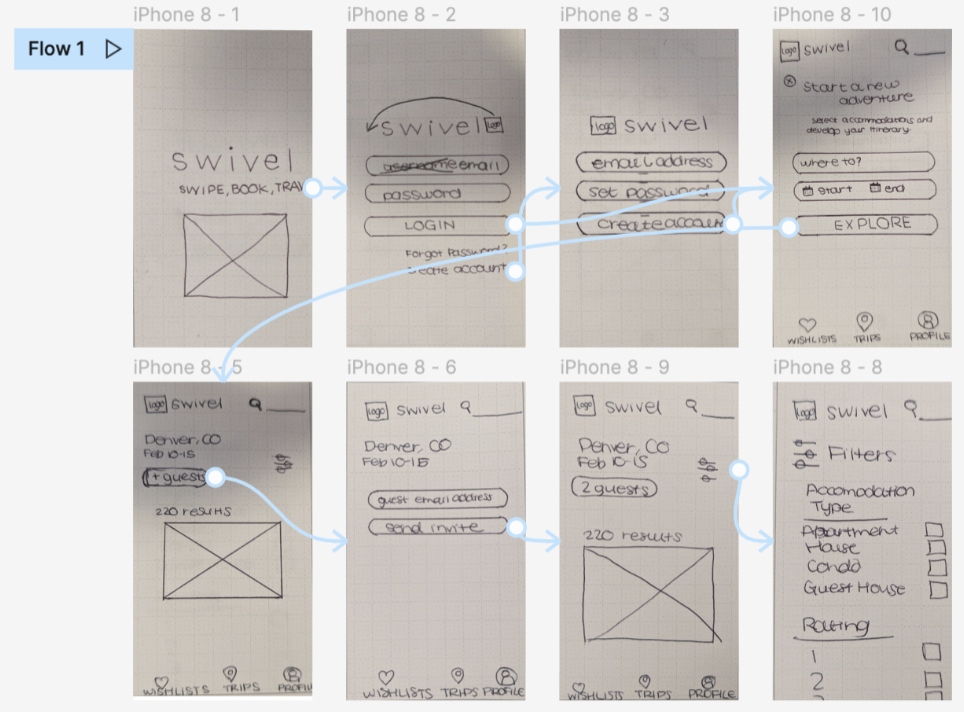 iPhone 8 - 1
iPhone 8 - 2
iPhone 8 - 3
iPhone 8 - 10
Flow 1
swivel
SWIPE, BOOK, TRAV
swivel logo
email
password
LOGIN
Forgot Password?
create account
logo swivel
email address
set password
create account
Logo swivel
Start a new
adventure
select accommodations and
develop your itinerary.
where to?
start end
EXPLORE
WISHLISTS TRIPS PROFILE
iPhone 8 - 5
iPhone 8 - 6
iPhone 8 - 9
iPhone 8 - 8
logo swivel
Denver, CO
Feb 10-15
+ guests
220 results
WISHLISTS TRIPS PROFIL
logo swivel
Denver, CO
Feb 10-15
guest email address
send invite
WISHLISTS TRIPS PROFILE
logo swivel
Denver, CO
Feb 10-15
2 guests
220 results
WISHLISTS TRIPS PROFILE
logo swivel
Filters
Accomodation
Type
Apartment
House
Condo
Guest House
Rating
1
2